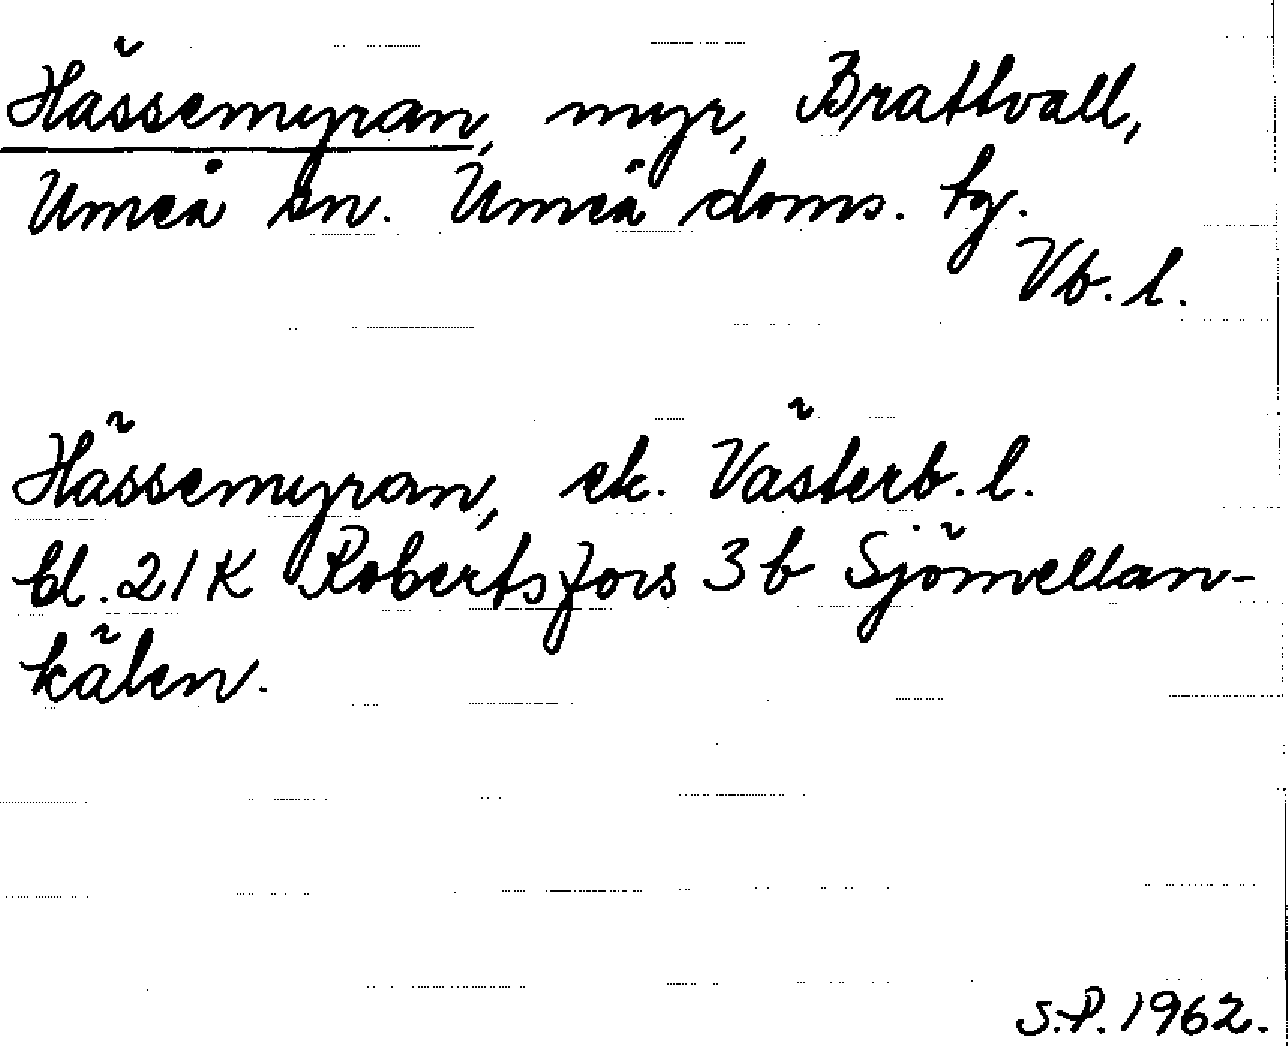 Hässemyran, myr, Brattvall,
Umeå sn. Umeå doms. tg.
Vb. l.
Hässemyran, ek. Västerb. l.
bl. 21 K Robertsfors 3 b Sjömellan-
kälen.
S.P. 1962.